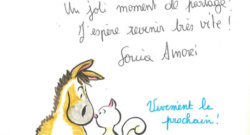 Un joli moment de partage
J'espère revenir très vite !
Sonia Amori
Vivement le
prochain !